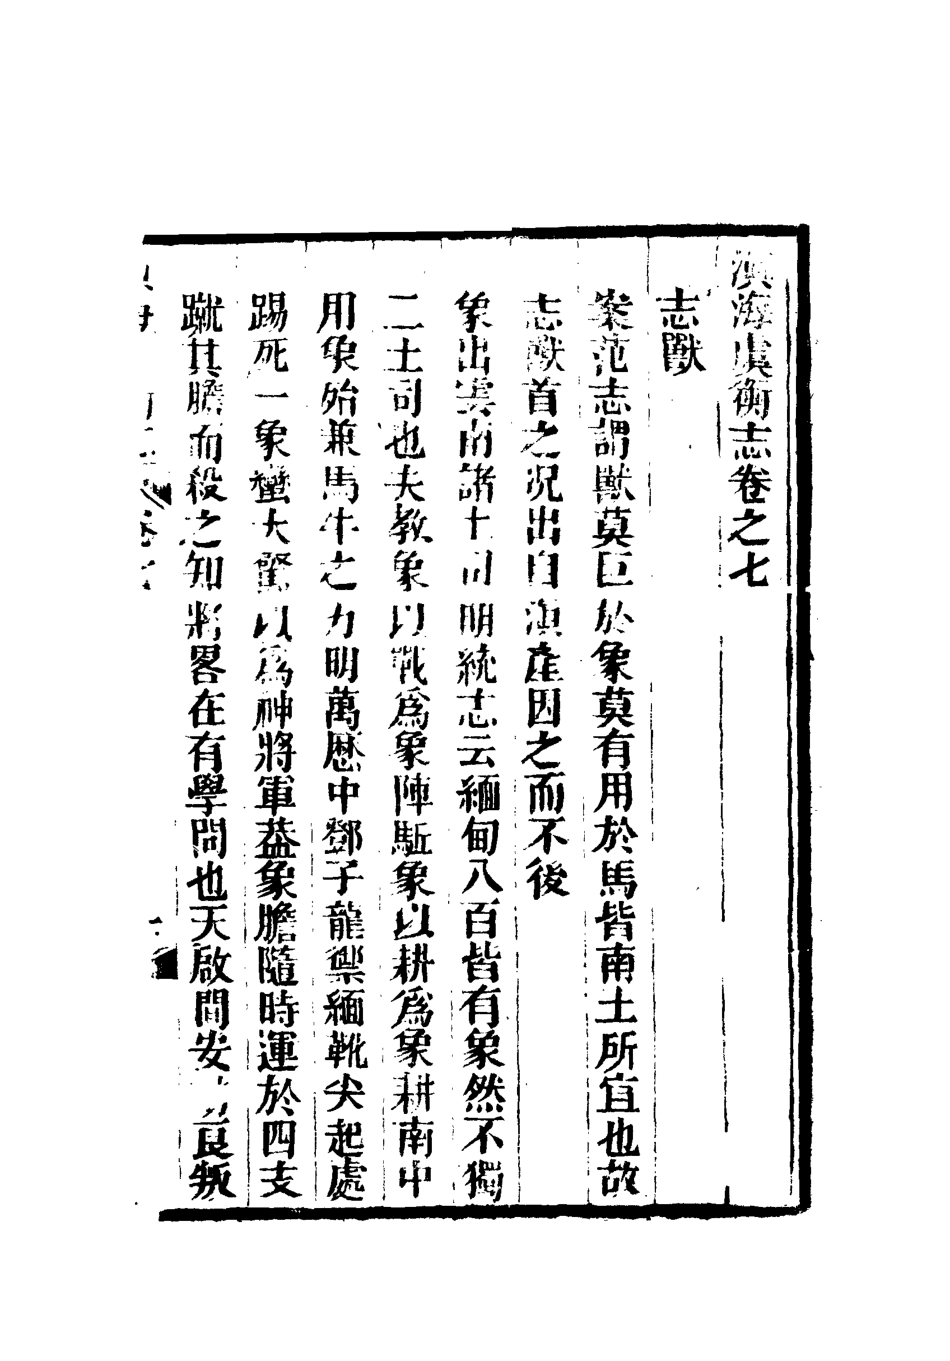 滇海虞衡志卷之七
志獸
案范志謂獸莫巨於象莫有用於馬皆南土所宜也故
志獸首之況出自滇產因之而不後
象出雲南諸土司明統志云緬甸八百皆有象然不獨
二土司也夫教象以戰爲象陣駈象以耕爲象耕南中
用象始兼馬牛之力明萬歷中鄧子龍禦緬靴尖起處
踢死一象蠻大驚以爲神將軍葢象膽隨時運於四支
蹴其膽而殺之知將畧在有學問也天啟間安邦彥叛